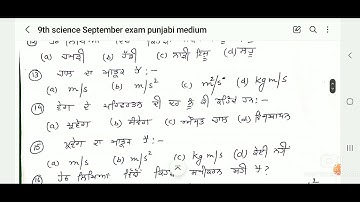 9th science September exam punjabi medium
(a) ਹਮਰੀ (b) ਹੱਡੀ (c) ਨਾੜੀ ਵਿਚ (d) ਲਹੂ
(13) ਚਾਲ ਦਾ ਮਾਤ੍ਰਕ ਹੈ :-
(a) m/s (b) m/s² (c) m²/s (d) kg m/s
(14) ਵੇਗ ਦੇ ਪਰਿਵਰਤਨ ਦੀ ਦਰ ਨੂੰ ਕੀ ਕਹਿੰਦੇ ਹਨ:-
(a) ਪ੍ਰਵੇਗ (b) ਸੰਵੇਗ (c) ਔਸਤ ਚਾਲ (d) ਵਿਸਥਾਪਨ
(15) ਪ੍ਰਵੇਗ ਦਾ ਮਾਤ੍ਰਕ ਹੈ :-
(a) m/s (b) m/s² (c) kg m/s (d) ਕੋਈ ਨਹੀਂ
(16) ਹੇਠ ਲਿਖਿਆਂ ਵਿੱਚੋਂ ਕਿਹੜਾ ਸਮੀਕਰਨ ਸਹੀ ਹੈ ?